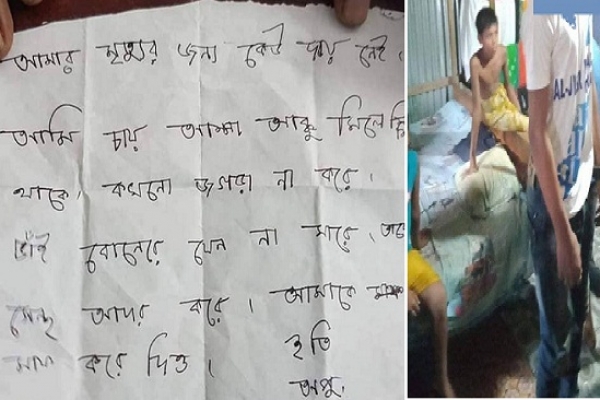 আমার মৃত্যুর জন্য কেউ দায় নেই।
আমি চায় আম্মা আব্বু মিলে
থাকে। কখনো জগরা না করে।
ভাই বোনেরে যেন না মারে।
আদর করে। আমাকে
মাপ করে দিও।
ইতি
অপু.